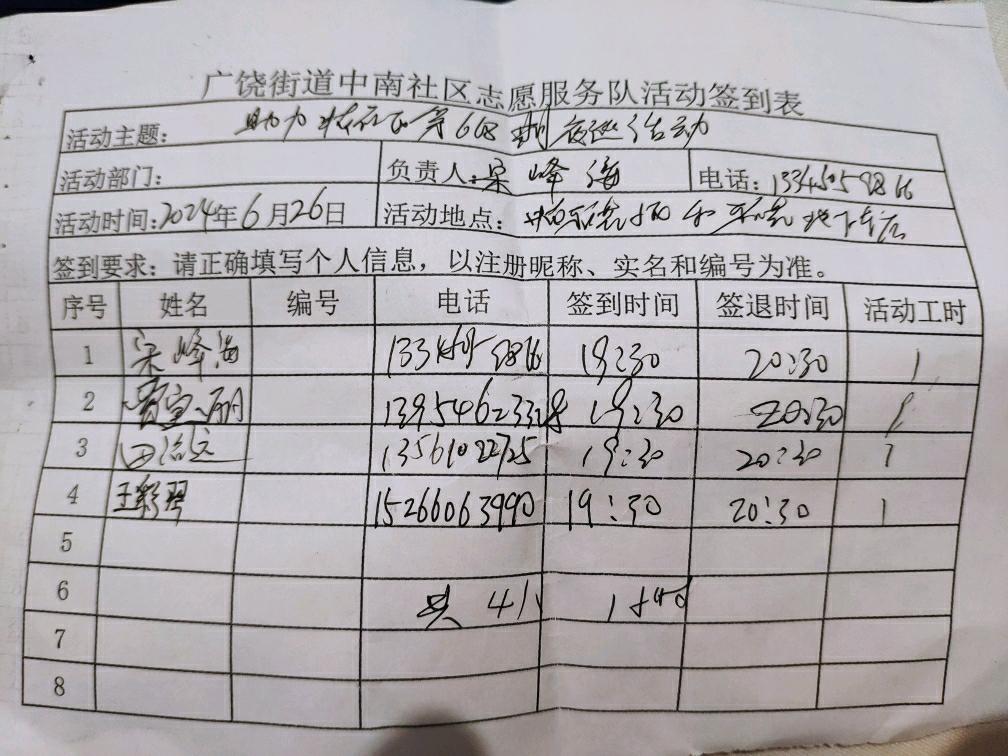 广饶街道中南社区志愿服务队活动签到表
活动主题: 助力 第668期夜巡活动
活动部门: 负责人:宋峰海 电话:13345059816
活动时间:2024年6月26日 活动地点: 和 地下车库
签到要求: 请正确填写个人信息, 以注册昵称、实名和编号为准。
序号 姓名 编号 电话 签到时间 签退时间 活动工时
1 宋峰海 19:30 20:30 1
2 13954623328 19:30 20:30 1
3 田治文 13561022725 19:30 20:30 1
4 王彩琴 15266063990 19:30 20:30 1
5
6 共 4人 1小时
7
8